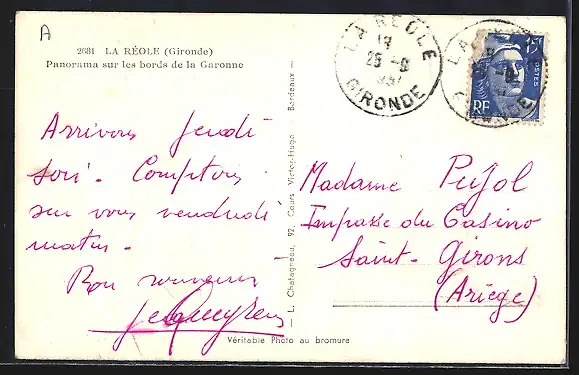 A
2681 LA RÉOLE (Gironde)
Panorama sur les bords de la Garonne
Arrivons jeudi
soir. Comptons
sur vous vendredi
matin.
Bon souvenir
L. Chatagneau, 92, Cours Victor-Hugo — Bordeaux —
Véritable Photo au bromure
LA RÉOLE
GIRONDE
POSTES
RF
Madame Pujol
Impasse du Casino
Saint-Girons
(Ariège)